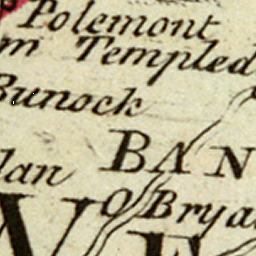 Polemont
m Templed
Bunock
BAN
lan
O Brya